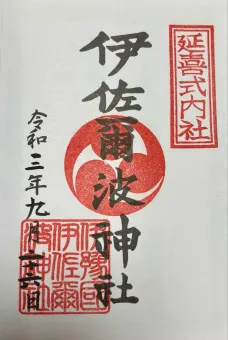 延喜式内社
伊佐爾波神社
令和三年九月二十六日
伊豫国
伊佐爾
波神社